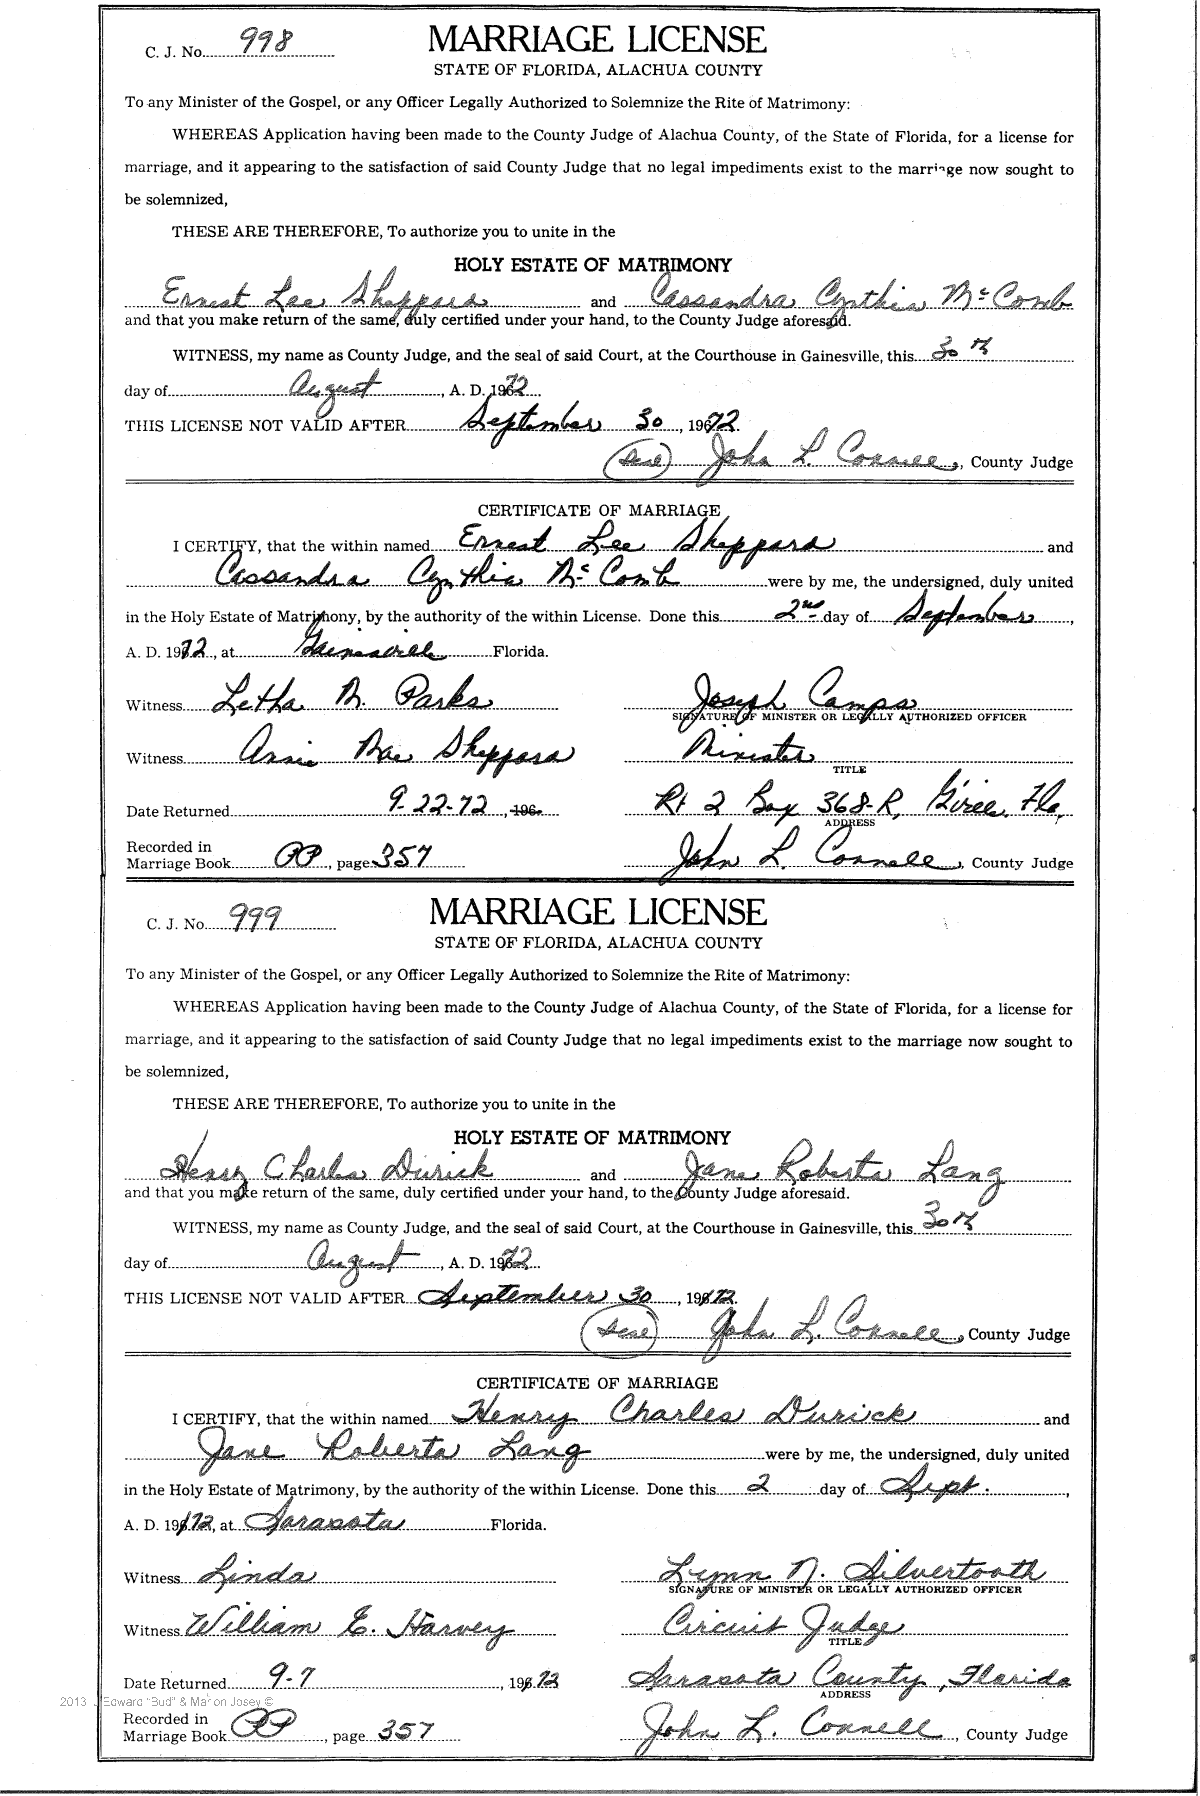 C. J. No. 998
MARRIAGE LICENSE
STATE OF FLORIDA, ALACHUA COUNTY
To any Minister of the Gospel, or any Officer Legally Authorized to Solemnize the Rite of Matrimony:
WHEREAS Application having been made to the County Judge of Alachua County, of the State of Florida, for a license for
marriage, and it appearing to the satisfaction of said County Judge that no legal impediments exist to the marriage now sought to
be solemnized,
THESE ARE THEREFORE, To authorize you to unite in the
HOLY ESTATE OF MATRIMONY
Ernest Lee Sheppard and Cassandra Cynthia McComb
and that you make return of the same, duly certified under your hand, to the County Judge aforesaid.
WITNESS, my name as County Judge, and the seal of said Court, at the Courthouse in Gainesville, this 30th
day of August, A. D. 1972
THIS LICENSE NOT VALID AFTER September 30, 1972
(Seal) John L. Connell, County Judge
CERTIFICATE OF MARRIAGE
I CERTIFY, that the within named Ernest Lee Sheppard and
Cassandra Cynthia McComb were by me, the undersigned, duly united
in the Holy Estate of Matrimony, by the authority of the within License. Done this 2nd day of September,
A. D. 1972, at Gainesville Florida.
Witness Letha M. Parks Joseph Camps
SIGNATURE OF MINISTER OR LEGALLY AUTHORIZED OFFICER
Witness Annie Mae Sheppard Minister
TITLE
Date Returned 9-22-72, 196 Rt 2 Box 368-R, G'ville, Fla.
ADDRESS
Recorded in
Marriage Book PP, page 357 John L. Connell, County Judge
C. J. No. 999
MARRIAGE LICENSE
STATE OF FLORIDA, ALACHUA COUNTY
To any Minister of the Gospel, or any Officer Legally Authorized to Solemnize the Rite of Matrimony:
WHEREAS Application having been made to the County Judge of Alachua County, of the State of Florida, for a license for
marriage, and it appearing to the satisfaction of said County Judge that no legal impediments exist to the marriage now sought to
be solemnized,
THESE ARE THEREFORE, To authorize you to unite in the
HOLY ESTATE OF MATRIMONY
Henry Charles Durick and Jane Roberta Lang
and that you make return of the same, duly certified under your hand, to the County Judge aforesaid.
WITNESS, my name as County Judge, and the seal of said Court, at the Courthouse in Gainesville, this 30th
day of August, A. D. 1972
THIS LICENSE NOT VALID AFTER September 30, 1972
(Seal) John L. Connell, County Judge
CERTIFICATE OF MARRIAGE
I CERTIFY, that the within named Henry Charles Durick and
Jane Roberta Lang were by me, the undersigned, duly united
in the Holy Estate of Matrimony, by the authority of the within License. Done this 2 day of Sept.,
A. D. 1972, at Sarasota Florida.
Witness Linda Lynn N. Silvertooth
SIGNATURE OF MINISTER OR LEGALLY AUTHORIZED OFFICER
Witness William E. Harvey Circuit Judge
TITLE
Date Returned 9-7, 1972 Sarasota County, Florida
ADDRESS
2013 J Edward "Bud" & Marion Josey ©
Recorded in
Marriage Book PP, page 357 John L. Connell, County Judge